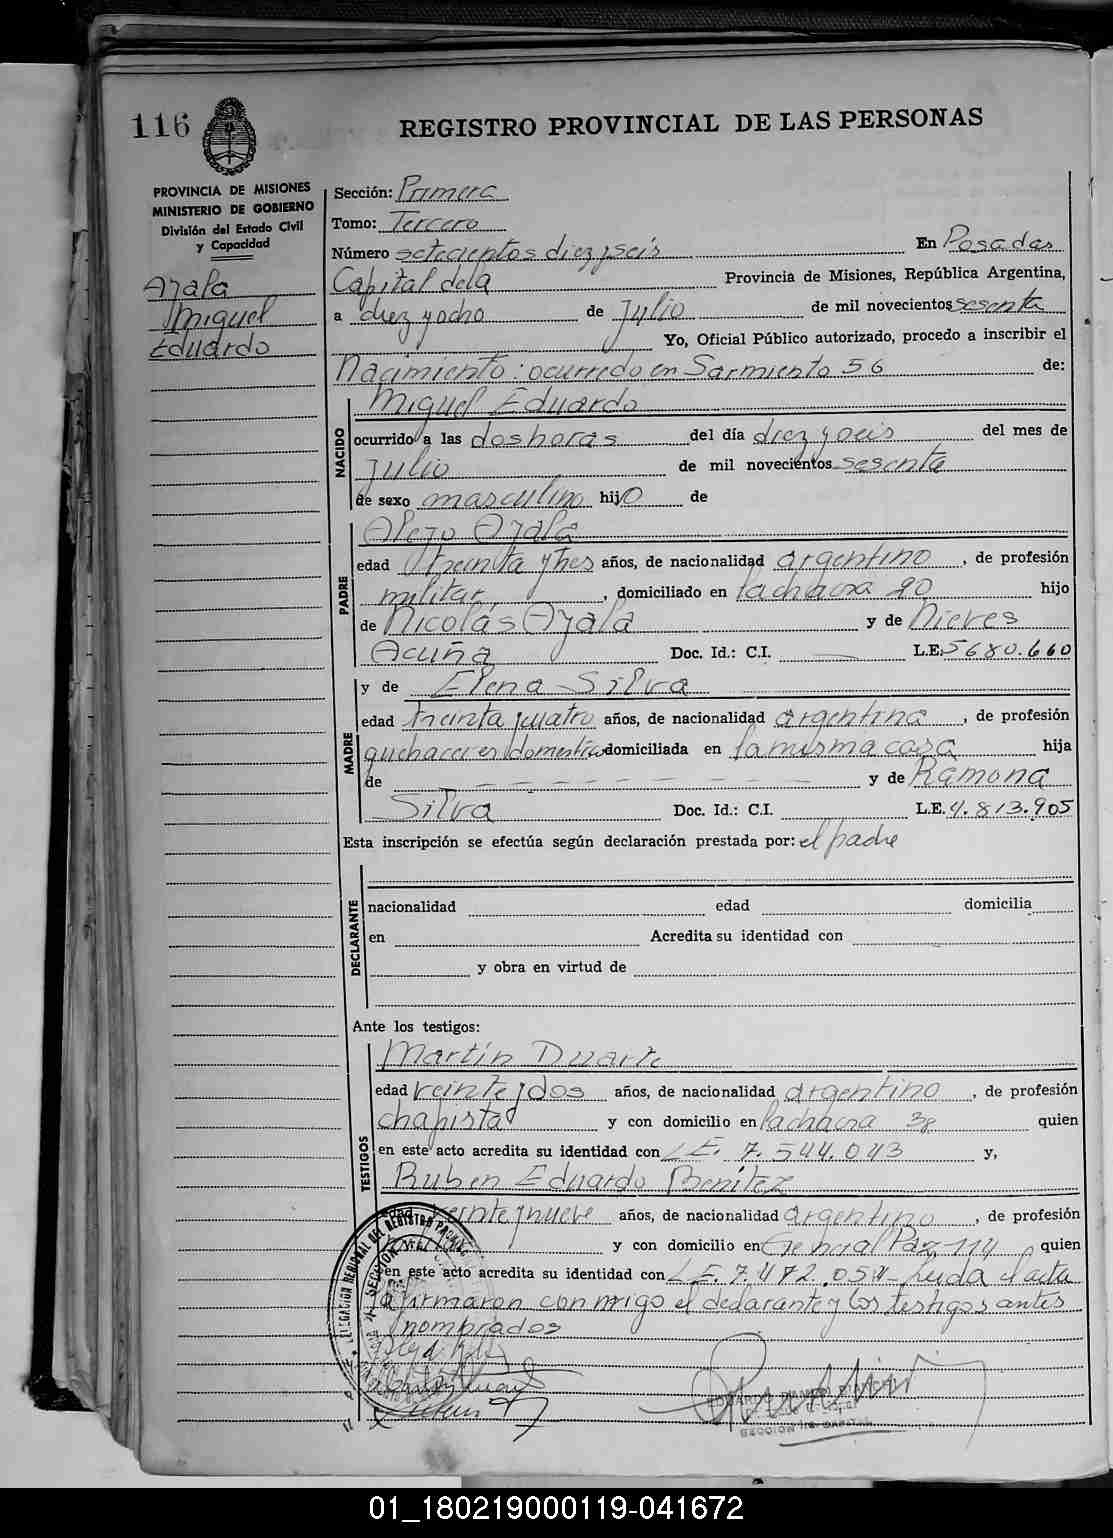 116
REGISTRO PROVINCIAL DE LAS PERSONAS
PROVINCIA DE MISIONES
MINISTERIO DE GOBIERNO
División del Estado Civil
y Capacidad
Ayala
Miguel
Eduardo
Sección: Primera
Tomo: Tercero
Número setecientos diez y seis En Posadas
Capital de la Provincia de Misiones, República Argentina,
a diez y ocho de Julio de mil novecientos sesenta
Yo, Oficial Público autorizado, procedo a inscribir el
Nacimiento: ocurrido en Sarmiento 56 de:
NACIDO
Miguel Eduardo
ocurrido a las dos horas del día diez y seis del mes de
Julio de mil novecientos sesenta
de sexo masculino hijo de
PADRE
Alejo Ayala
edad treinta y tres años, de nacionalidad argentino, de profesión
militar, domiciliado en la chacra 90 hijo
de Nicolás Ayala y de Nieves
Acuña Doc. Id.: C.I. — L.E. 5680.660
MADRE
y de Elena Silva
edad treinta y cuatro años, de nacionalidad argentina, de profesión
quehaceres domésticos domiciliada en la misma casa hija
de — — — — — — — y de Ramona
Silva Doc. Id.: C.I. L.E. 4.813.905
Esta inscripción se efectúa según declaración prestada por: el padre
DECLARANTE
nacionalidad edad domicilia
en Acredita su identidad con
y obra en virtud de
Ante los testigos:
TESTIGOS
Martín Duarte
edad veinte y dos años, de nacionalidad argentino, de profesión
chapista y con domicilio en la chacra 38 quien
en este acto acredita su identidad con L.E. 7.544.043 y,
Ruben Eduardo Benítez
edad veinte y nueve años, de nacionalidad argentino, de profesión
y con domicilio en General Paz 114 quien
en este acto acredita su identidad con L.E. 7.472.054 - Leída el acta
a firmaron conmigo el declarante y los testigos antes
nombrados
DELEGACION REGIONAL DEL REGISTRO
SECCION
01_180219000119-041672